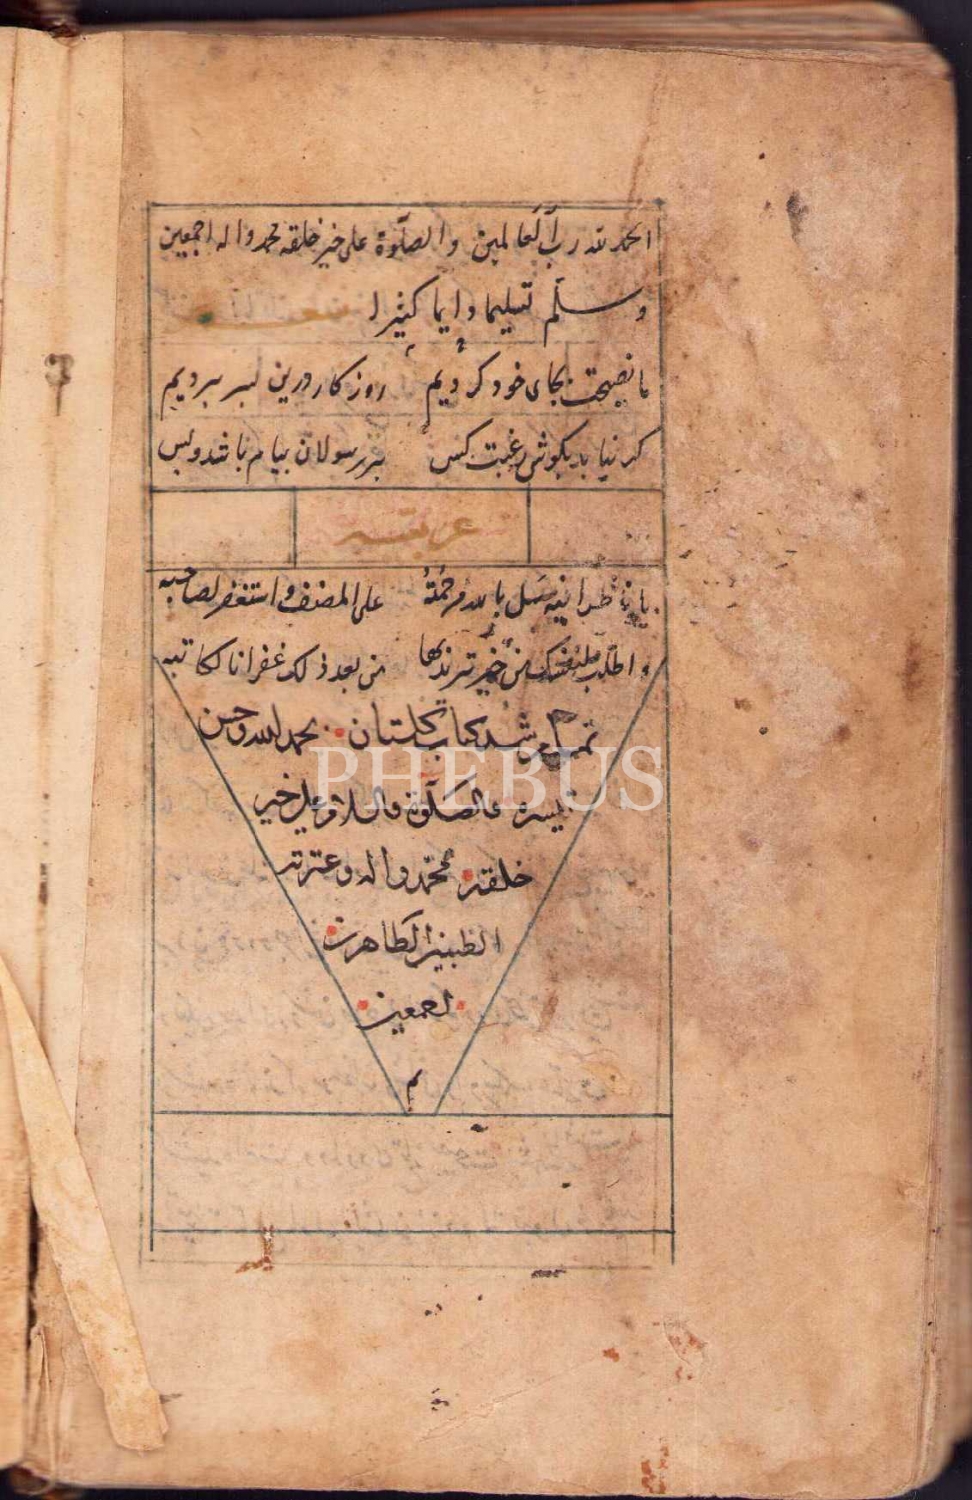 الحمد لله رب العالمين والصلوة على خير خلقه محمد واله اجمعين
وسلم تسليما دايما كثيرا شعر
ما نصيحت بجاى خود كرديم روزكارى درين بسر برديم
كر نيايد بكوش رغبت كس بر رسولان پيام باشد وبس
عربيه
يا ناظرا فيه سل بالله مرحمة على المصنف واستغفر لصاحبه
واطلب لنفسك من خير تريد بها من بعد ذلك غفرانا لكاتبه
تمت شد كتاب كلستان بحمد الله وحسن
تيسره والصلوة والسلام على خير
خلقه محمد واله وعترته
الطيبين الطاهرين
اجمعين
م
PHEBUS